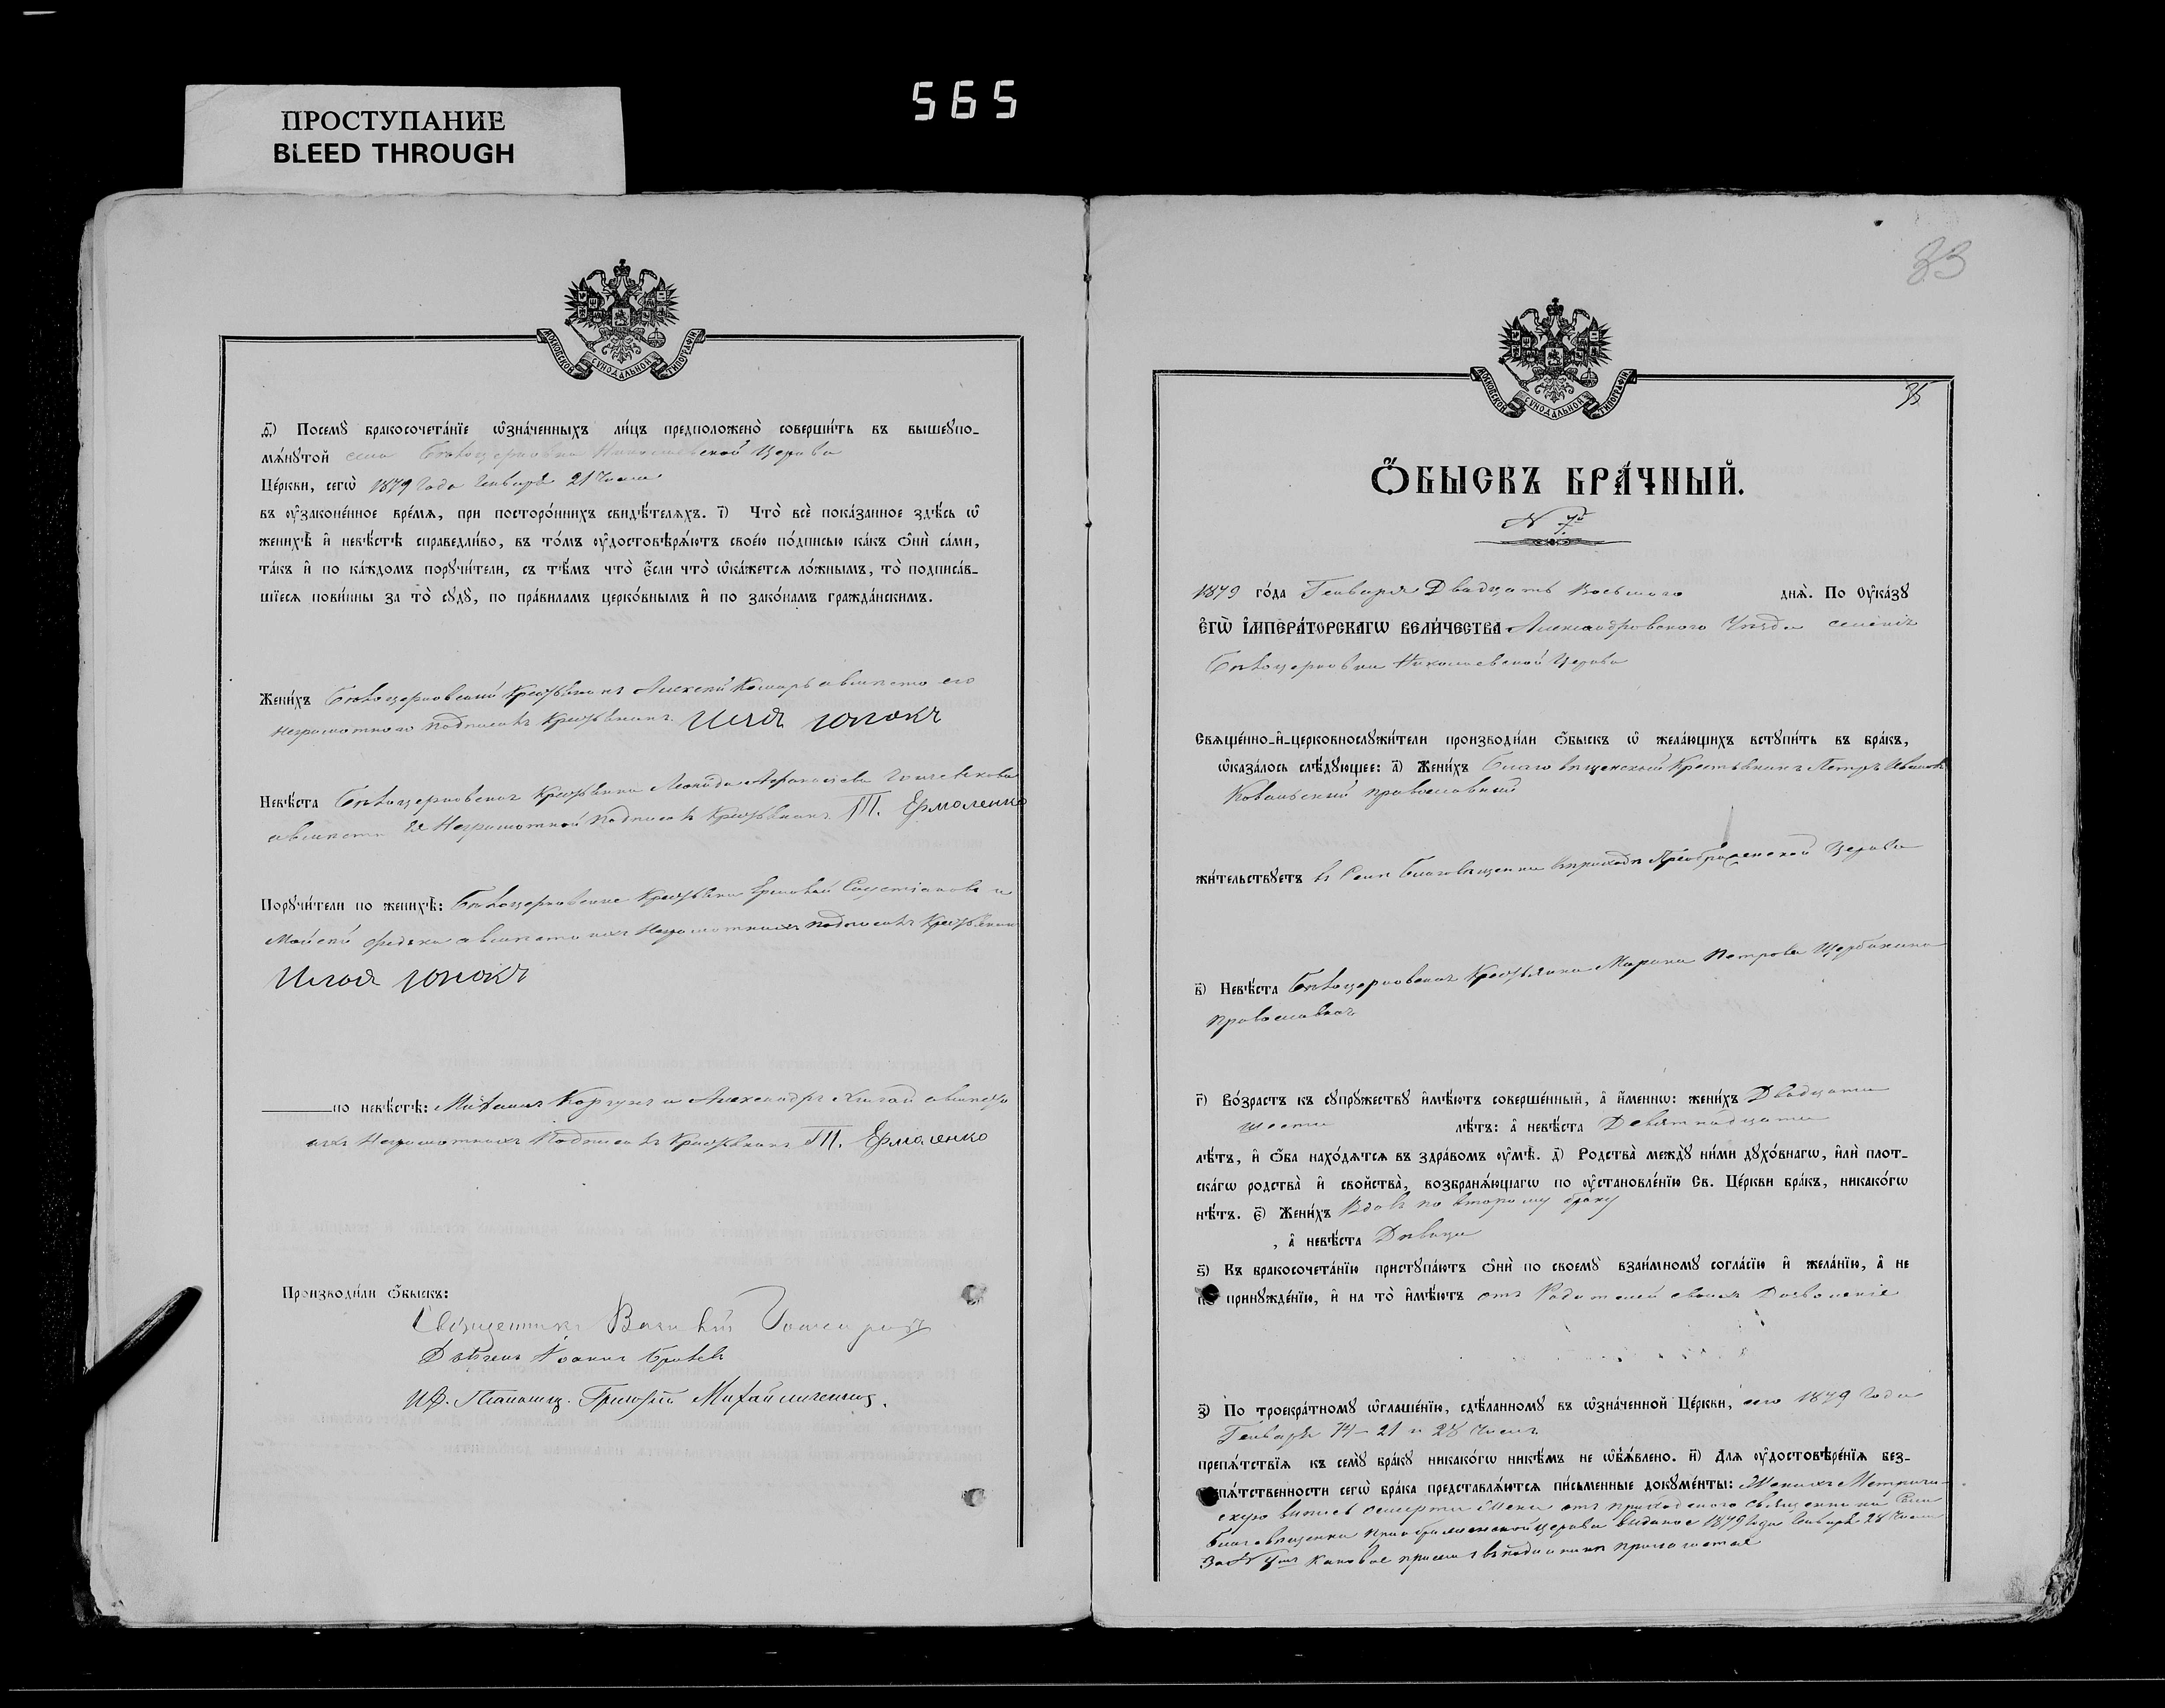 565
ПРОСТУПАНИЕ
BLEED THROUGH
МОСКОВСКОЙ СУНОДАЛЬНОЙ ТИПОГРАФІИ
д҃) Посемꙋ̀ бракосочета́нїе ѡ҆зна́ченныхъ ли́цъ предположено̀ соверши́ть въ вышеꙋпо-
мѧ́нꙋтой села Бѣлоцерковки Николаевской Церкви
Це́ркви, сегѡ̀ 1879 Года Генваря 21 Числа
въ ᲂу҆законе́нное вре́мѧ, при посторо́ннихъ свидѣ́телѧхъ. і҃) Что̀ всѐ пока́занное здѣ́сь ѡ҆
женихѣ̀ и҆ невѣ́стѣ справедли́во, въ то́мъ ᲂу҆достовѣрѧ́ютъ свое́ю по́дписью ка́къ ѻ҆нѝ са́ми,
та́къ и҆ по ка́ждомъ порꙋчи́тели, съ тѣ́мъ что̀ є҆́сли что̀ ѡ҆ка́жетсѧ ло́жнымъ, то̀ подписа́в-
шїесѧ пови́нны за то̀ сꙋдꙋ̀, по пра́виламъ церко́внымъ и҆ по зако́намъ гражда́нскимъ.
Жени́хъ Бѣлоцерковский Крестьянинъ Алексей а вместо его
неграмотного подписалъ Крестьянинъ Илья
Невѣ́ста Бѣлоцерковская Крестьянка
а вместо ее Неграмотной Подписалъ Крестьянинъ Т. Ермоленко
Порꙋчи́тели по женихѣ̀: Бѣлоцерковские Крестьяне и
а вместо ихъ Неграмотныхъ подписалъ Крестьянинъ
Илья
по невѣ́стѣ: Михаилъ и Александръ а вместо
ихъ Неграмотныхъ Подписалъ Крестьянинъ Т. Ермоленко
Производи́ли ѻ҆́быскъ:
Священникъ Василий
Дьячекъ Иоаннъ
И. Д. Григорий Михайличенко.
33
35
МОСКОВСКОЙ СУНОДАЛЬНОЙ ТИПОГРАФІИ
Ѻ҆́БЫСКЪ БРА́ЧНЫЙ.
N 7й
1879 го́да Генваря Двадцать Восьмого днѧ̀. По Оу҆ка́зꙋ
Є҆ГѠ̀ І҆МПЕРА́ТОРСКАГѠ ВЕЛИ́ЧЕСТВА Александровского Уезда селенія
Бѣлоцерковки Николаевской Церкви
Свѧще́нно-и҆-церковнослꙋжи́тели производи́ли ѻ҆́быскъ ѡ҆ жела́ющихъ встꙋпи́ть въ бра́къ,
ѡ҆каза́лось слѣ́дꙋющее: а҃) Жени́хъ Благовещенский Крестьянинъ Петръ Ивановъ
Ковальский православный
жи́тельствꙋетъ въ Селе Благовещенки въ приходе Преображенской Церкви
в҃) Невѣ́ста Бѣлоцерковская Крестьянка Марина Петрова Щербакина
православная
г҃) Во́зрастъ къ сꙋпрꙋ́жествꙋ и҆мѣ́ютъ соверше́нный, а҆ и҆́меннѡ: жени́хъ Двадцати
шести лѣ́тъ: а҆ невѣ́ста Девятнадцати
лѣ́тъ, и҆ ѻ҆́ба нахо́дѧтсѧ въ здра́вомъ ᲂу҆мѣ̀. д҃) Родства̀ междꙋ̀ ни́ми дꙋхо́внагѡ, и҆лѝ плот-
ска́гѡ родства̀ и҆ сво́йства̀, возбранѧ́ющагѡ по ᲂу҆становле́нїю Св. Це́ркви бра́къ, никако́гѡ
нѣ́тъ. є҃) Жени́хъ Вдовъ по второму браку
, а҆ невѣ́ста Девица
ѕ҃) Къ бракосочета́нїю пристꙋпа́ютъ ѻ҆нѝ по своемꙋ̀ взаи́мномꙋ согла́сїю и҆ жела́нїю, а҆ не
по принꙋжде́нїю, и҆ на то̀ и҆мѣ́ютъ отъ Родителей своихъ Дозволеніе
з҃) По троекра́тномꙋ ѡ҆глаше́нїю, сдѣ́ланномꙋ въ ѡ҆зна́ченной Це́ркви, сего 1879 Года
Генваря 14 - 21 и 28 Числъ
препѧ́тствїѧ къ семꙋ̀ бра́кꙋ никако́гѡ никѣ́мъ не ѡ҆б̾ѧ́влено. и҃) Для ᲂу҆достовѣре́нїѧ без-
препѧ́тственности сегѡ̀ бра́ка представлѧ́ютсѧ пи́сьменные докꙋме́нты: Женихъ Метричи-
скую выпись о смерти жены отъ приходского священника Села
Благовещенки Преображенской церкви выданое 1879 Года Генваря 28 Числа
За N